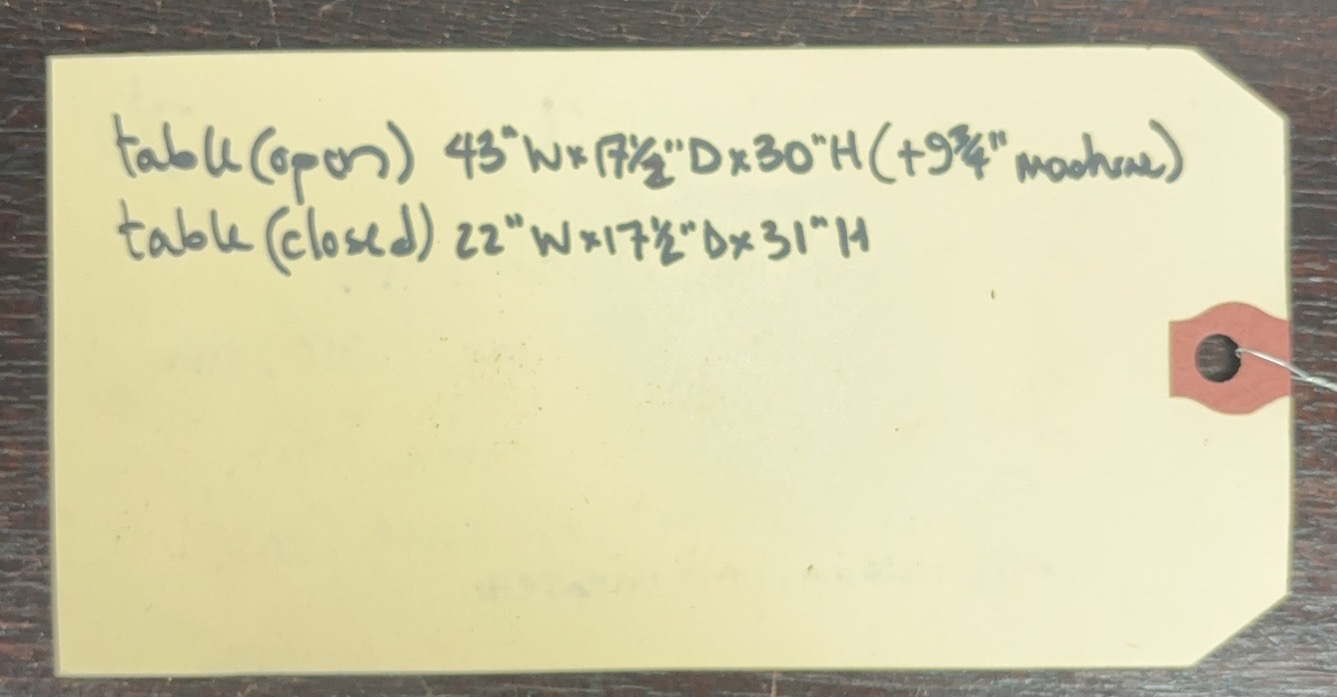 table (open) 43" W x 17 1/2" D x 30" H (+9 3/4" machine)
table (closed) 22" W x 17 1/2" D x 31" H